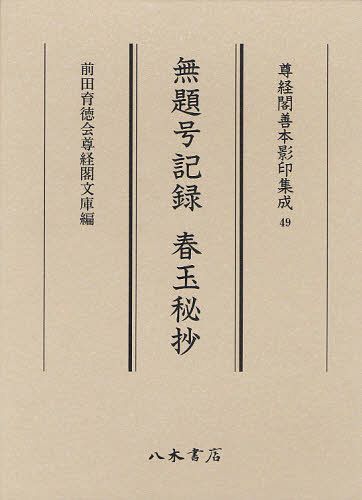 尊経閣善本影印集成 49
無題号記録 春玉秘抄
前田育徳会尊経閣文庫編
八木書店